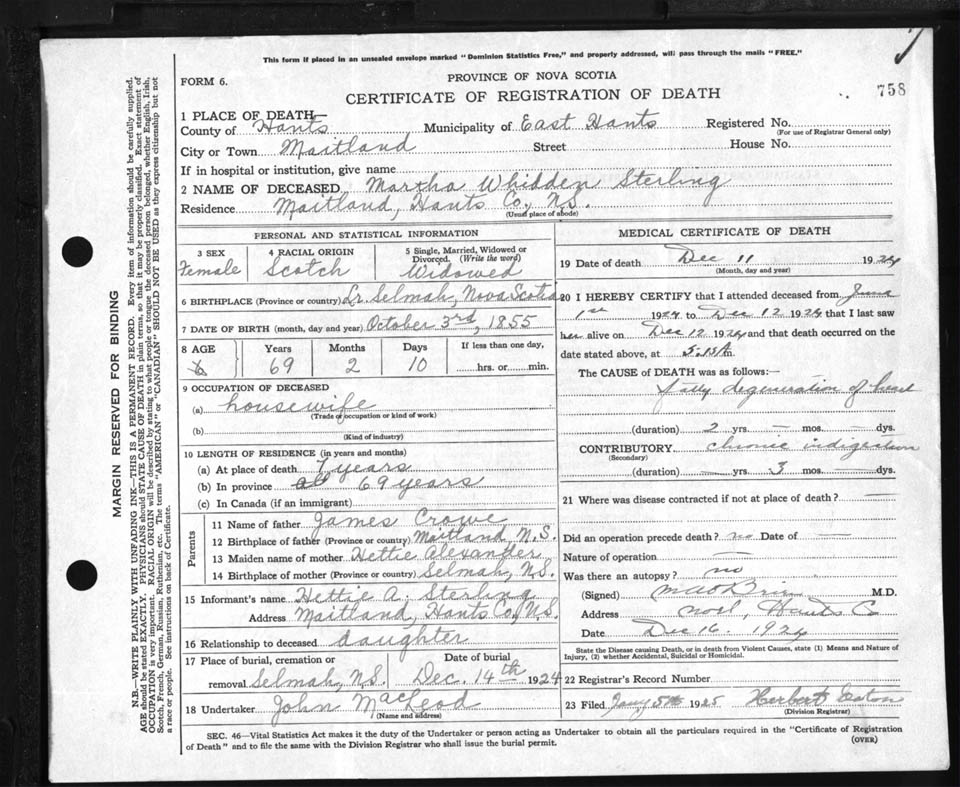 This form if placed in an unsealed envelope marked "Dominion Statistics Free," and properly addressed, will pass through the mails "FREE."
FORM 6.
PROVINCE OF NOVA SCOTIA
CERTIFICATE OF REGISTRATION OF DEATH
758
1 PLACE OF DEATH—
County of Hants Municipality of East Hants Registered No.
(For use of Registrar General only)
City or Town Maitland Street House No.
If in hospital or institution, give name
2 NAME OF DECEASED Martha Whidden Sterling
Residence Maitland, Hants Co., N.S.
(Usual place of abode)
PERSONAL AND STATISTICAL INFORMATION
3 SEX 4 RACIAL ORIGIN 5 Single, Married, Widowed or
Divorced. (Write the word)
Female Scotch Widowed
6 BIRTHPLACE (Province or country) Lr. Selmah, Nova Scotia
7 DATE OF BIRTH (month, day and year) October 3rd, 1855
8 AGE Years Months Days If less than one day,
69 2 10 hrs. or min.
9 OCCUPATION OF DECEASED
(a) housewife
(Trade or occupation or kind of work)
(b)
(Kind of industry)
10 LENGTH OF RESIDENCE (in years and months)
(a) At place of death 7 years
(b) In province 69 years
(c) In Canada (if an immigrant)
Parents
11 Name of father James Crowe
12 Birthplace of father (Province or country) Maitland, N.S.
13 Maiden name of mother Hettie Alexander
14 Birthplace of mother (Province or country) Selmah, N.S.
15 Informant's name Hettie A. Sterling
Address Maitland, Hants Co., N.S.
16 Relationship to deceased daughter
17 Place of burial, cremation or Date of burial
removal Selmah, N.S. Dec. 14th 1924
18 Undertaker John MacLeod
(Name and address)
MEDICAL CERTIFICATE OF DEATH
19 Date of death Dec 11 1924
(Month, day and year)
20 I HEREBY CERTIFY that I attended deceased from June
1st 1924 to Dec 12 1924 that I last saw
her alive on Dec 12 1924 and that death occurred on the
date stated above, at 5.15 A m.
The CAUSE of DEATH was as follows:—
fatty degeneration of heart
(duration) 2 yrs. — mos. — dys.
CONTRIBUTORY chronic indigestion
(Secondary)
(duration) — yrs. 3 mos. — dys.
21 Where was disease contracted if not at place of death? —
Did an operation precede death? no Date of —
Nature of operation —
Was there an autopsy? no
(Signed) M.D.
Address Noel, Hants Co
Date Dec 16. 1924
State the Disease causing Death, or in death from Violent Causes, state (1) Means and Nature of
Injury, (2) whether Accidental, Suicidal or Homicidal.
22 Registrar's Record Number
23 Filed Jany 5th 1925 Herbert Eaton
(Division Registrar)
SEC. 46—Vital Statistics Act makes it the duty of the Undertaker or person acting as Undertaker to obtain all the particulars required in the "Certificate of Registration
of Death" and to file the same with the Division Registrar who shall issue the burial permit.
(OVER)
MARGIN RESERVED FOR BINDING
N.B.—WRITE PLAINLY WITH UNFADING INK—THIS IS A PERMANENT RECORD. Every item of information should be carefully supplied.
AGE should be stated EXACTLY. PHYSICIANS should STATE CAUSE OF DEATH in plain terms, so that it may be properly classified. Exact statement of
OCCUPATION is very important. RACIAL ORIGIN will be described by stating to what people or tongue the deceased person belonged, whether English, Irish,
Scotch, French, German, Russian, Ruthenian, etc. The terms "AMERICAN" or "CANADIAN" SHOULD NOT BE USED as they express citizenship but not
a race or people. See instructions on back of Certificate.